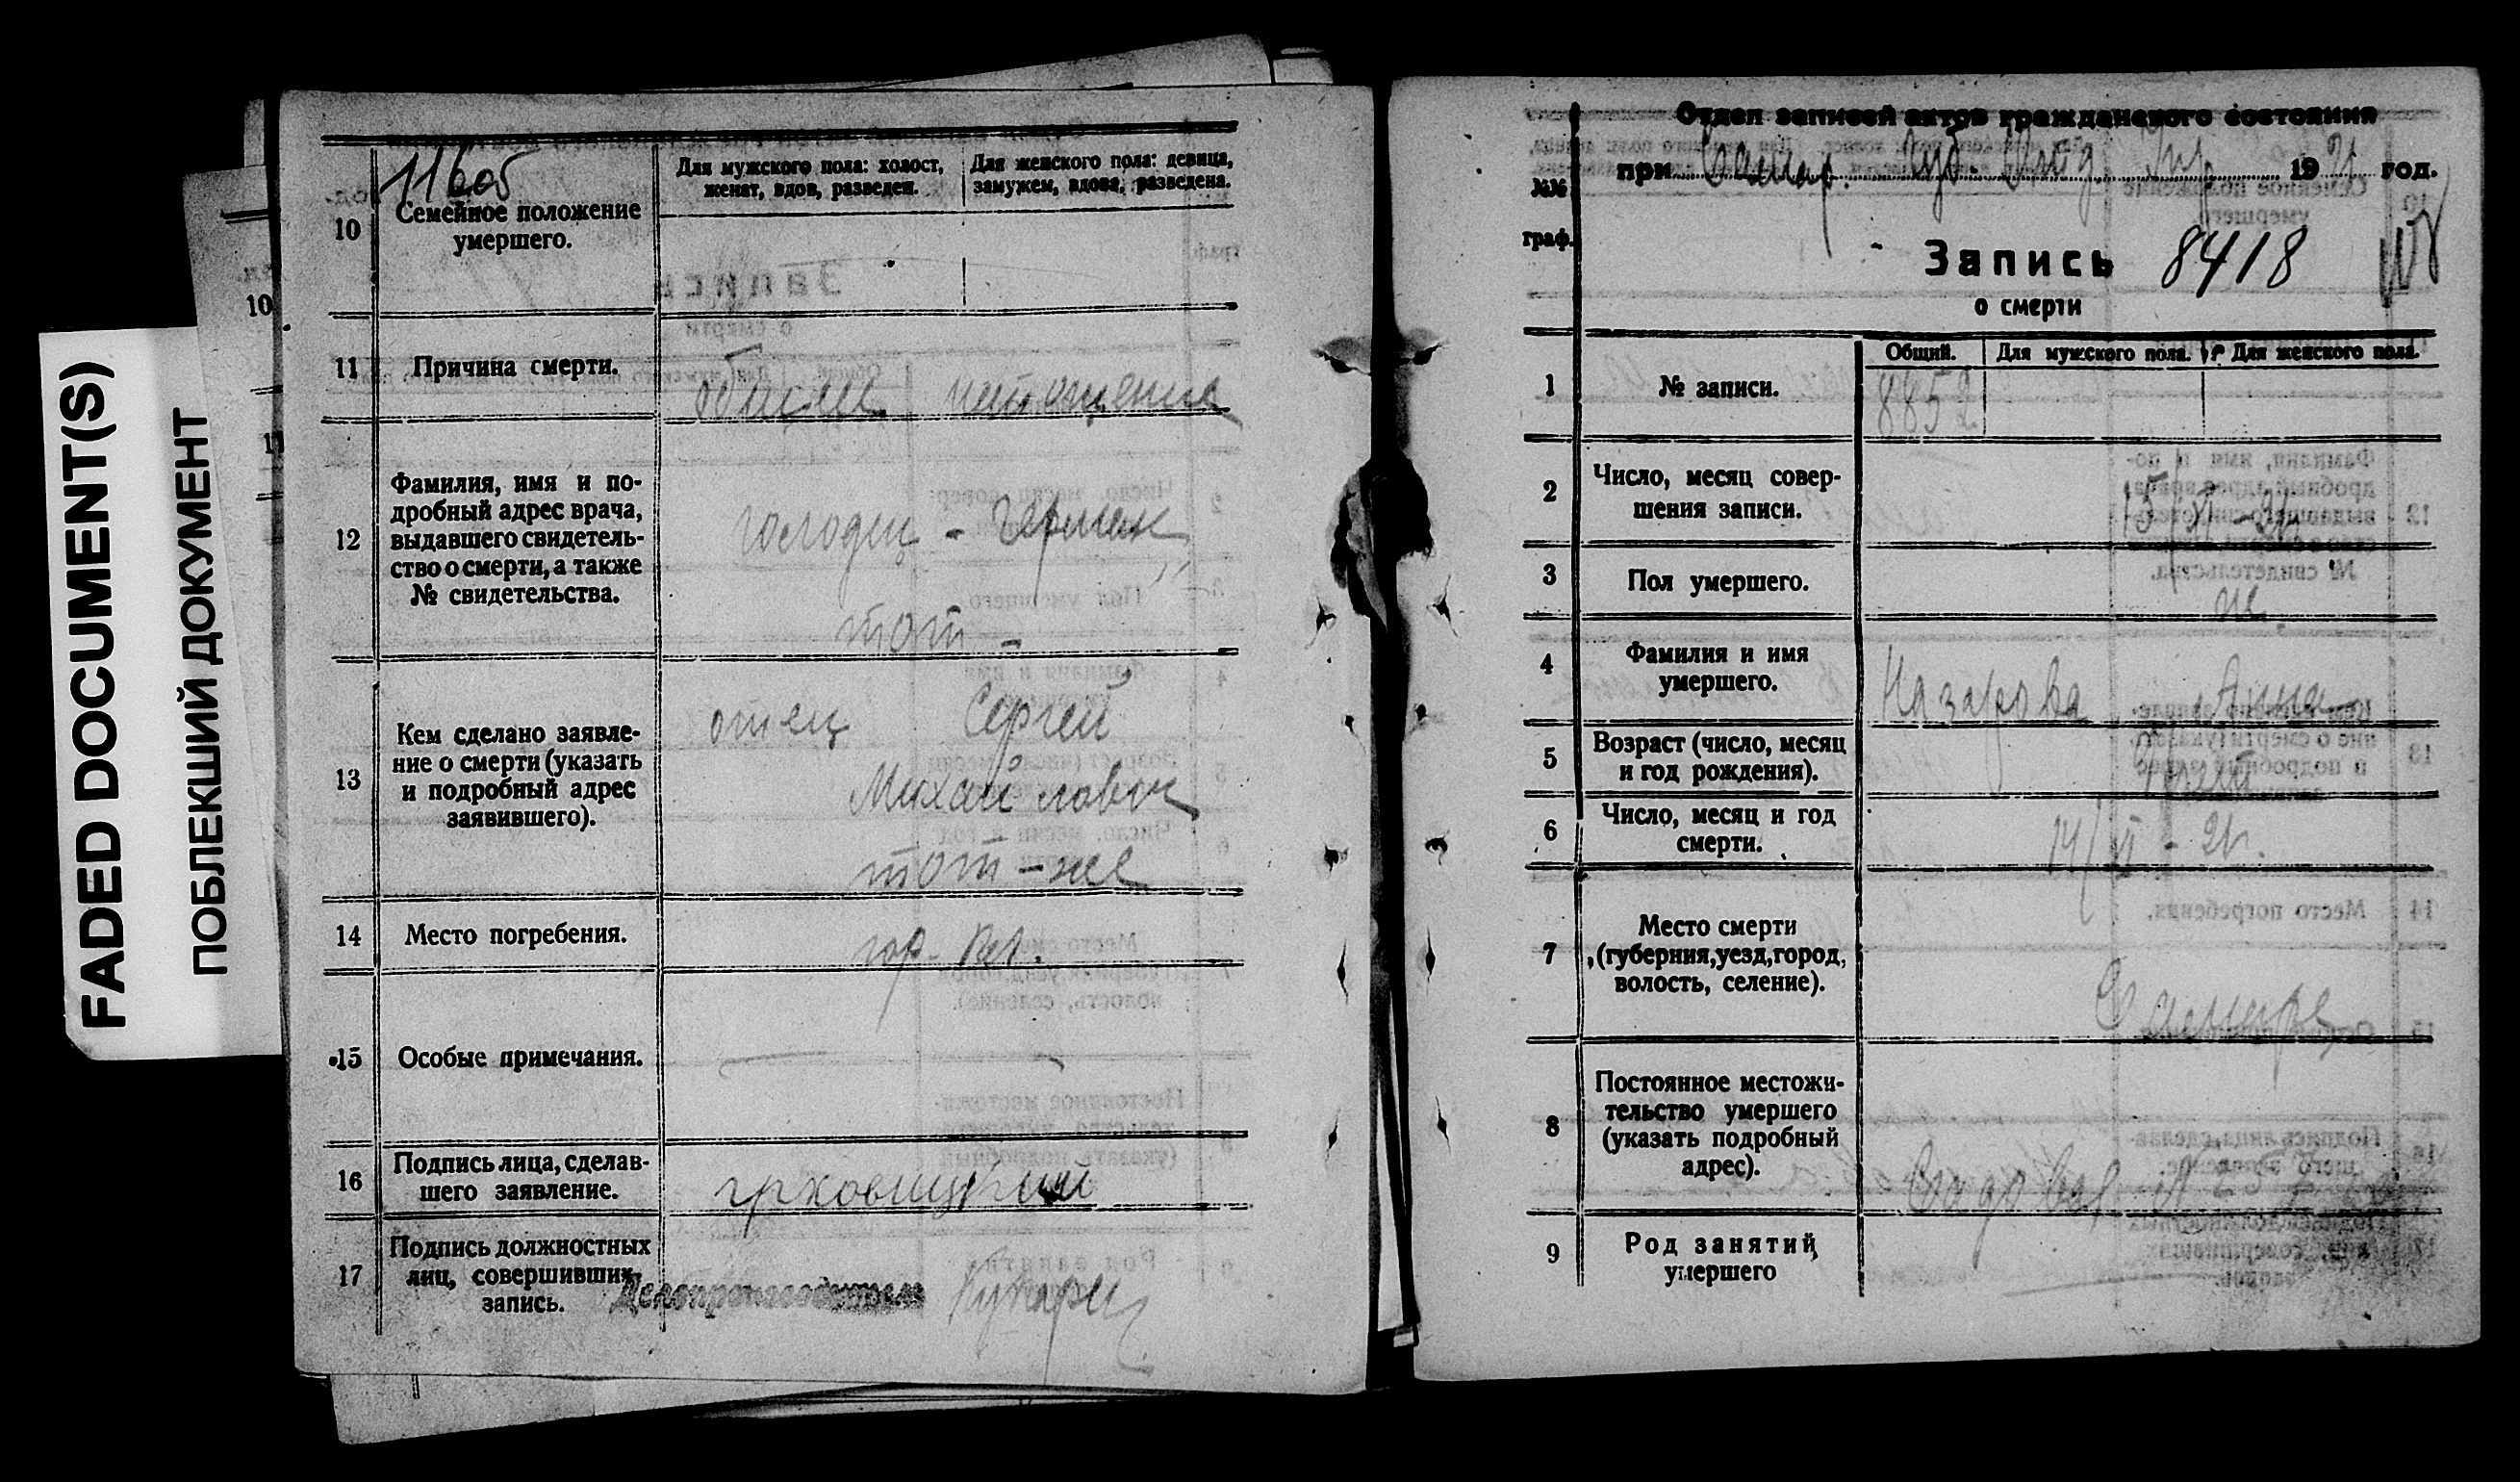 FADED DOCUMENT(S)
ПОБЛЕКШИЙ ДОКУМЕНТ
10
11
11605
10
Семейное положение
умершего.
Для мужского пола: холост,
женат, вдов, разведен.
Для женского пола: девица,
замужем, вдова, разведена.
11
Причина смерти.
общее истощение
12
Фамилия, имя и по-
дробный адрес врача,
выдавшего свидетель-
ство о смерти, а также
№ свидетельства.
13
Кем сделано заявле-
ние о смерти (указать
и подробный адрес
заявившего).
отец Сергей
Михайлович
тот-же
14
Место погребения.
гор.
15
Особые примечания.
16
Подпись лица, сделав-
шего заявление.
17
Подпись должностных
лиц, совершивших
запись.
Делопроизводитель
Отдел записей актов гражданского состояния
при Самар. Губ. 1921 год.
№№
граф.
Запись 8418
о смерти
1
№ записи.
Общий.
Для мужского пола.
Для женского пола.
8852
2
Число, месяц совер-
шения записи.
3
Пол умершего.
же
4
Фамилия и имя
умершего.
Назарова Анна
5
Возраст (число, месяц
и год рождения).
6
Число, месяц и год
смерти.
14/VI - 21г.
7
Место смерти
(губерния, уезд, город,
волость, селение).
Самаре
8
Постоянное местожи-
тельство умершего
(указать подробный
адрес).
Садовая № 257
9
Род занятий
умершего